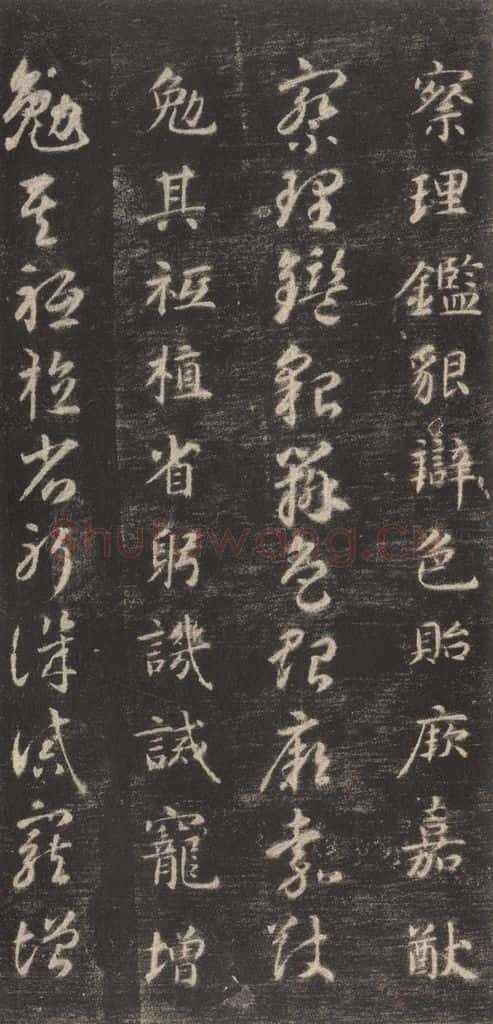 察理鑑貌辯色貽厥嘉猷
察理鑑貌辯色貽厥嘉猷
勉其祗植省躬譏誡寵增
勉其祗植省躬譏誡寵增
shufawang.cn